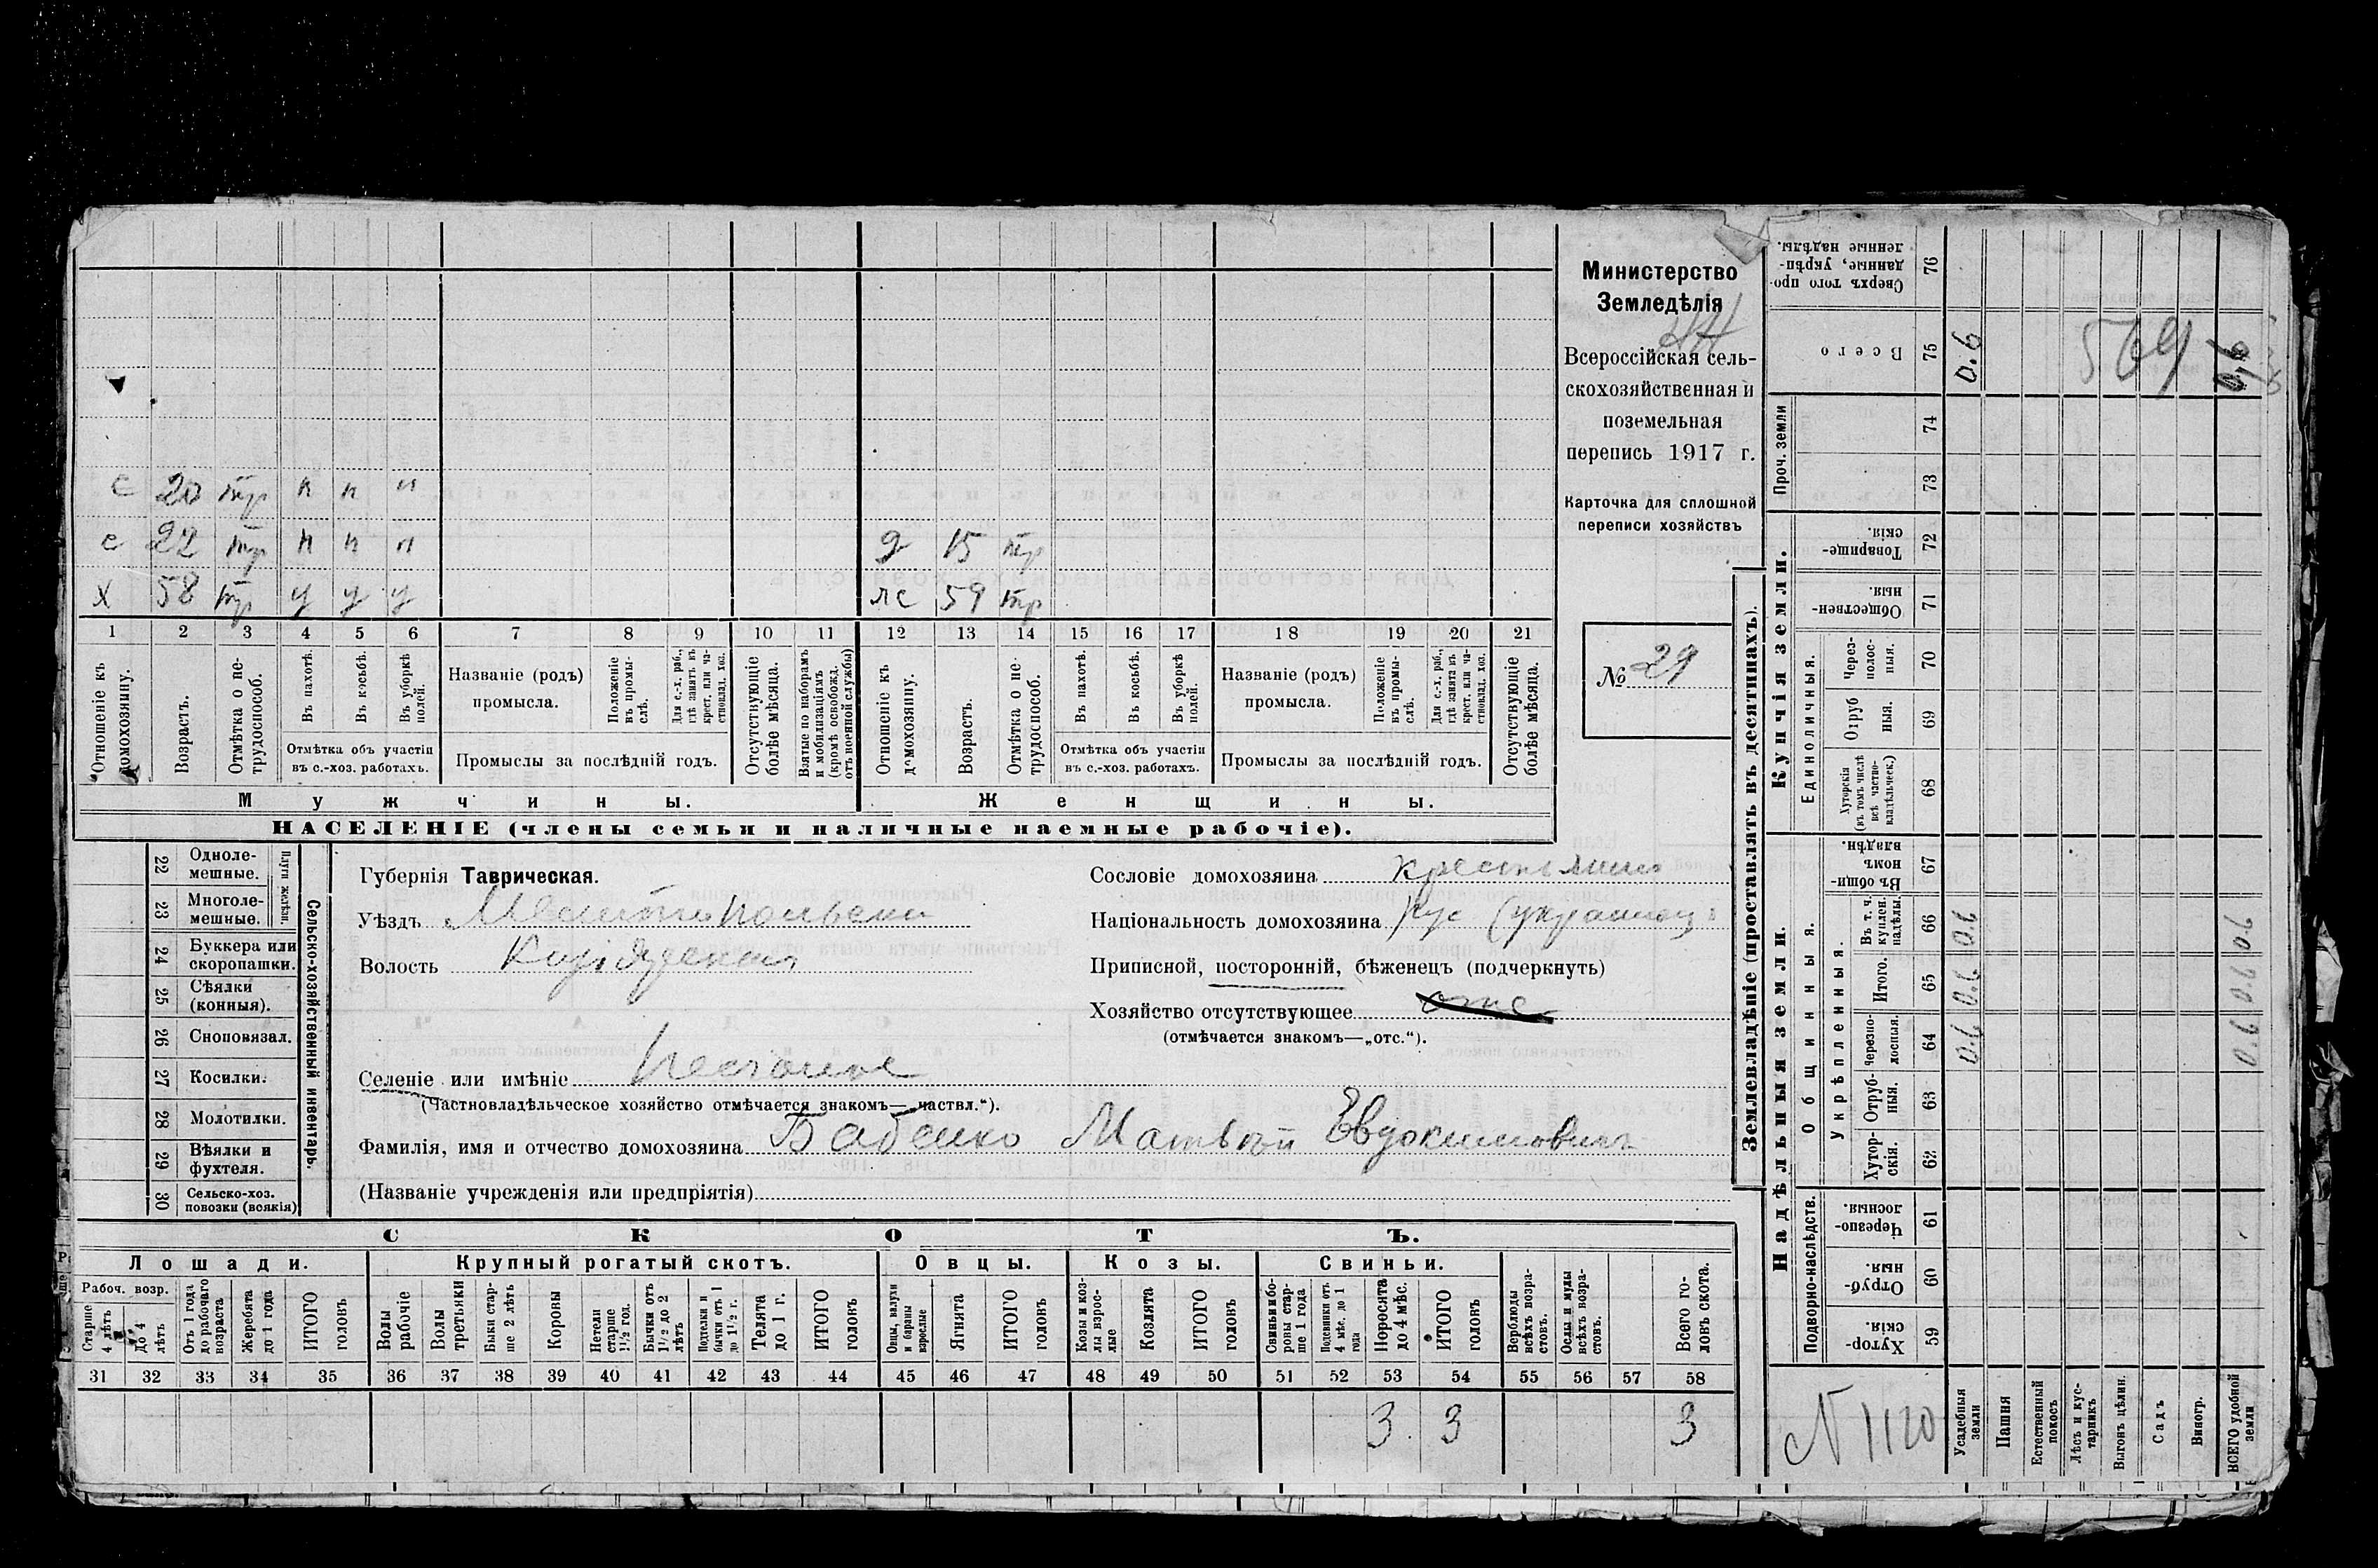 с 20 тр п п п
с 22 тр п п п д 15 тр
х 58 тр у у у жс 59 тр
1 2 3 4 5 6 7 8 9 10 11 12 13 14 15 16 17 18 19 20 21
Отношеніе къ домохозяину.
Возрастъ.
Отмѣтка о нетрудоспособ.
Въ пахотѣ.
Въ косьбѣ.
Въ уборкѣ полей.
Отмѣтка объ участіи въ с.-хоз. работахъ.
Названіе (родъ) промысла.
Положеніе въ промыслѣ.
Для с.-х. раб., гдѣ занятъ въ крест. или частновлад. хоз.
Промыслы за послѣдній годъ.
Отсутствующіе болѣе мѣсяца.
Взятые по наборамъ и мобилизаціямъ (кромѣ освобожд. отъ военной службы)
Отношеніе къ домохозяину.
Возрастъ.
Отмѣтка о нетрудоспособ.
Въ пахотѣ.
Въ косьбѣ.
Въ уборкѣ полей.
Отмѣтка объ участіи въ с.-хоз. работахъ.
Названіе (родъ) промысла.
Положеніе въ промыслѣ.
Для с.-х. раб., гдѣ занята въ крест. или частновлад. хоз.
Промыслы за послѣдній годъ.
Отсутствующіе болѣе мѣсяца.
Мужчины.
Женщины.
НАСЕЛЕНІЕ (члены семьи и наличные наемные рабочіе).
Министерство
Земледѣлія
Всероссійская сель-
скохозяйственная и
поземельная
перепись 1917 г.
Карточка для сплошной
переписи хозяйствъ
№ 29
Сельско-хозяйственный инвентарь.
Плуги желѣзн.
22 Одноле-
мешные.
23 Многоле-
мешные.
24 Буккера или
скоропашки.
25 Сѣялки
(конныя).
26 Сноповязал.
27 Косилки.
28 Молотилки.
29 Вѣялки и
фухтеля.
30 Сельско-хоз.
повозки (всякія)
Губернія Таврическая.
Уѣздъ Мелитопольскій
Волость
Селеніе или имѣніе Песчаное
(Частновладѣльческое хозяйство отмѣчается знакомъ— „частвл.“).
Фамилія, имя и отчество домохозяина Бабенко Матвѣй Евдокимовичъ
(Названіе учрежденія или предпріятія)
Сословіе домохозяина крестьянинъ
Національность домохозяина Рус (украинец
Приписной, посторонній, бѣженецъ (подчеркнуть)
Хозяйство отсутствующее отс
(отмѣчается знакомъ—„отс.“).
СКОТЪ.
Лошади. Крупный рогатый скотъ. Овцы. Козы. Свиньи.
Рабоч. возр.
Старше 4 лѣтъ
До 4 лѣтъ
Отъ 1 года до рабочаго возраста
Жеребята до 1 года
ИТОГО головъ
Волы рабочіе
Волы третьяки
Быки старше 2 лѣтъ
Коровы
Нетели старше 1½ год.
Бычки отъ 1½ до 2 лѣтъ
Подтелки и бычки отъ 1 до 1½ г.
Телята до 1 г.
ИТОГО головъ
Овцы, валухи и бараны взрослые
Ягнята
ИТОГО головъ
Козы и козлы взрослые
Козлята
ИТОГО головъ
Свиньи и боровы старше 1 года
Подсвинки отъ 4 мѣс. до 1 года
Поросята до 4 мѣс.
ИТОГО головъ
Верблюды всѣхъ возрастовъ.
Ослы и мулы всѣхъ возрастовъ.
Всего головъ скота.
31 32 33 34 35 36 37 38 39 40 41 42 43 44 45 46 47 48 49 50 51 52 53 54 55 56 57 58
3 3 3
Землевладѣніе (проставлять въ десятинахъ).
Купчія земли.
Надѣльныя земли.
Сверхъ того проданные, укрѣпленные надѣлы. 76
Всего 75 0.6 569 0,6
Проч. земли 74
73
Товарищескія. 72
Общественныя. 71
Единоличныя.
Черезполосныя. 70
Отрубныя. 69
Хуторскія (въ томъ числѣ всѣ частновладѣльческ.) 68
Общинныя.
Въ общинномъ владѣн. 67
Укрѣпленныя.
Въ т. ч. куплен. надѣлы. 66 0.6 0.6
Итого. 65 0.6 0.6
Черезполосныя. 64 0.6 0.6
Отрубныя. 63
Хуторскія. 62
Подворно-наслѣдств.
Черезполосныя. 61
Отрубныя. 60
Хуторскія. 59
N 1120
Усадебныя земли
Пашня
Естественный покосъ
Лѣсъ и кустарникъ
Выгонъ цѣлин.
Садъ
Виногр.
ВСЕГО удобной земли